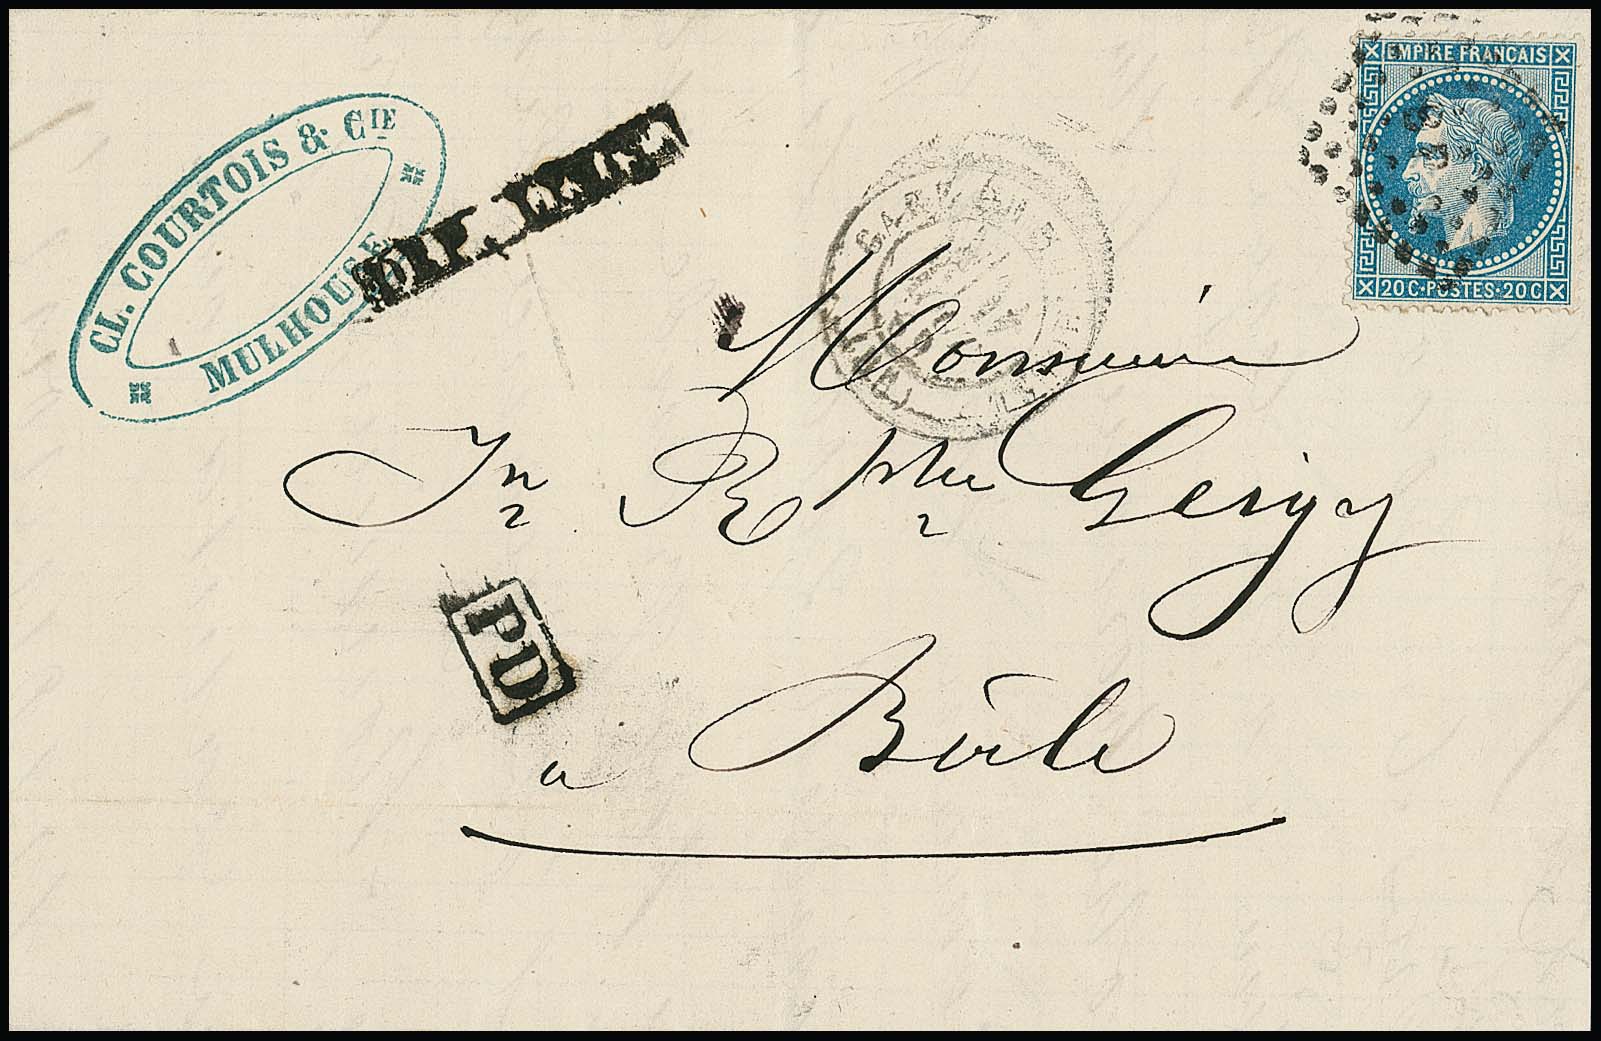 CL. COURTOIS & CIE
MULHOUSE
EMPIRE FRANÇAIS
20C·POSTES·20C
GARE DE
Monsieur
Jn Rphe Geigy
PD
a Bâle